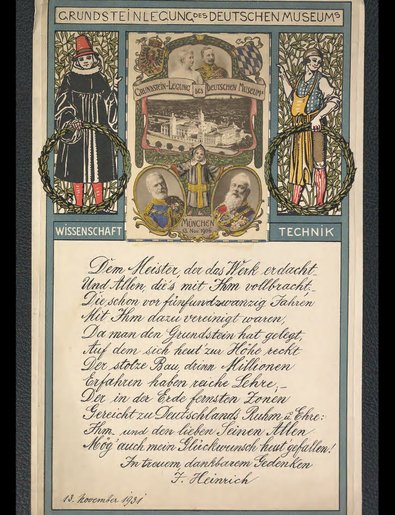 GRUNDSTEINLEGUNG DES DEUTSCHEN MUSEUMS
GRUNDSTEIN-LEGUNG DES DEUTSCHEN MUSEUMS
MÜNCHEN
13. Nov. 1906
WISSENSCHAFT
TECHNIK
Dem Meister, der das Werk erdacht.
Und Allen, die's mit Ihm vollbracht_
Die schon vor fünfundzwanzig Jahren
Mit Ihm dazu vereinigt waren,
Da man den Grundstein hat gelegt,
Auf dem sich heut zur Höhe reckt
Der stolze Bau, drinn Millionen
Erfahren haben reiche Lehre,_
Der in der Erde fernsten Zonen
Gereicht zu Deutschlands Ruhm u. Ehre:
Ihm und den lieben Seinen Allen
Mög' auch mein Glückwunsch heut gefallen!
In treuem, dankbarem Gedenken
F. Heinrich
13. November 1931